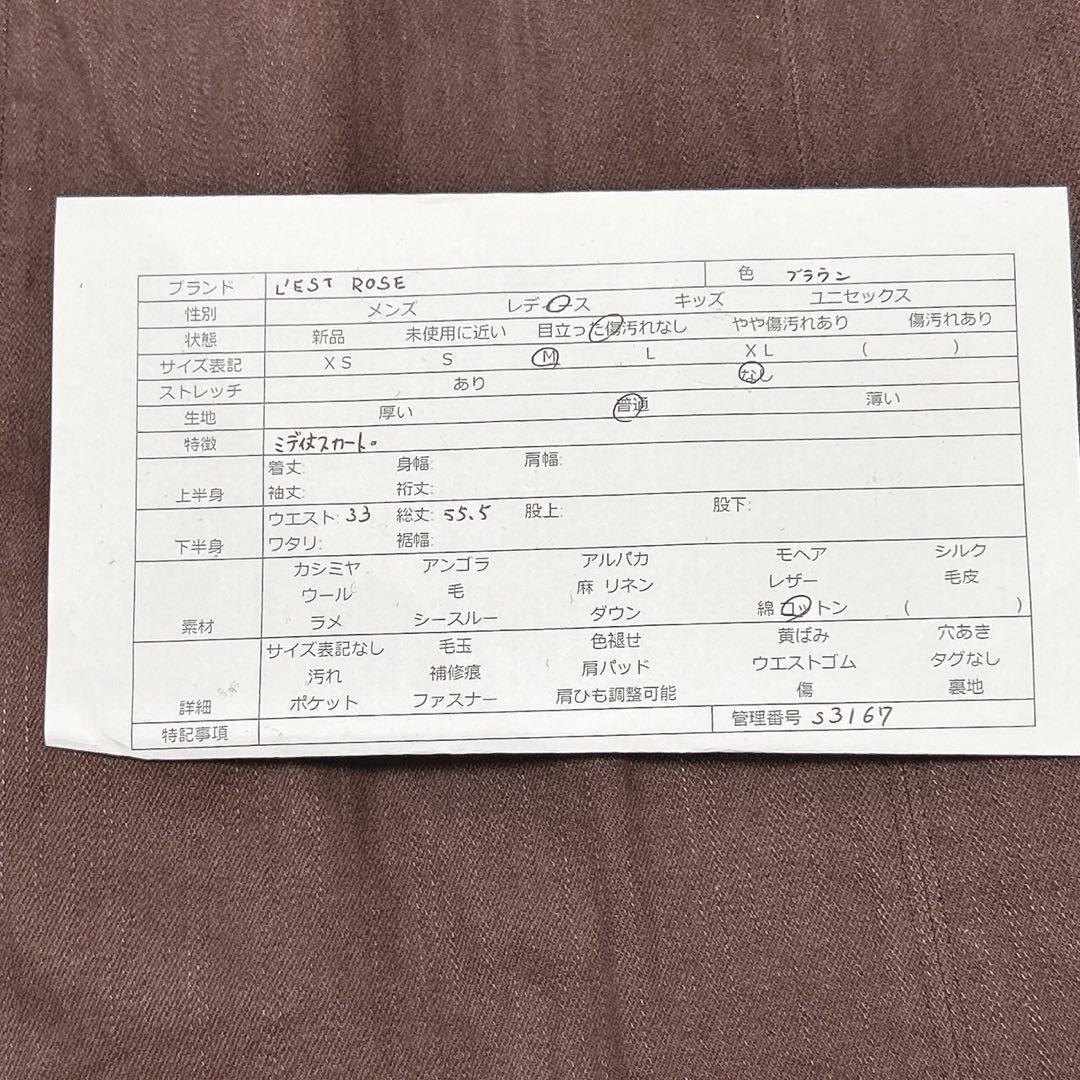 ブランド L'EST ROSE 色 ブラウン
性別 メンズ レディース キッズ ユニセックス
状態 新品 未使用に近い 目立った傷汚れなし やや傷汚れあり 傷汚れあり
サイズ表記 XS S M L XL ( )
ストレッチ あり なし
生地 厚い 普通 薄い
特徴 ミディ丈スカート。
着丈: 身幅: 肩幅:
上半身 袖丈: 裄丈:
ウエスト: 33 総丈: 55.5 股上: 股下:
下半身 ワタリ: 裾幅:
カシミヤ アンゴラ アルパカ モヘア シルク
ウール 毛 麻 リネン レザー 毛皮
素材 ラメ シースルー ダウン 綿 コットン ( )
サイズ表記なし 毛玉 色褪せ 黄ばみ 穴あき
汚れ 補修痕 肩パッド ウエストゴム タグなし
詳細 ポケット ファスナー 肩ひも調整可能 傷 裏地
特記事項 管理番号 S3167